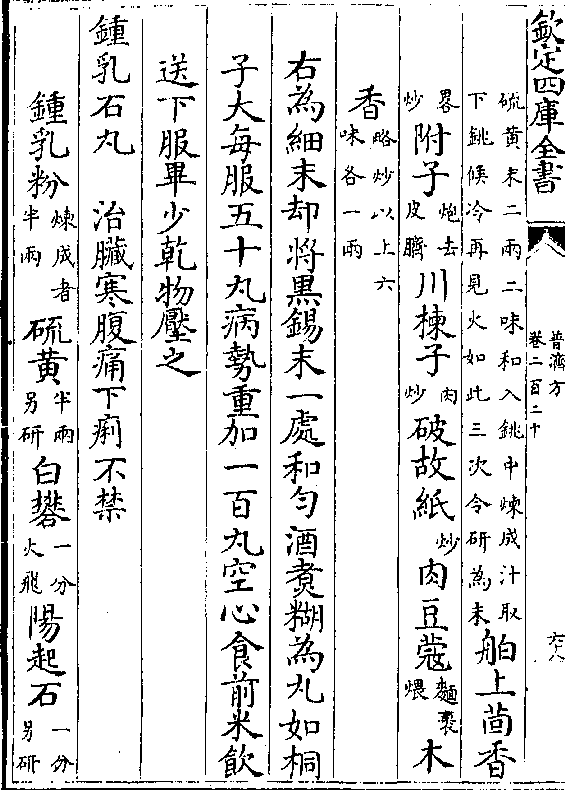 欽定四庫全書
普濟方
卷二百二十
六八
硫黄末二兩二味和入銚中煉成汁取
下銚候冷再見火如此三次令研為末
舶上茴香
畧炒
附子
炮去皮臍
川楝子
肉炒
破故紙
炒
肉豆蔻
麵裹煨
木
香
略炒以上六味各一兩
右為細末却將黒錫末一處和勻酒煑糊為丸如桐
子大每服五十丸病勢重加一百丸空心食前米飲
送下服畢少乾物壓之
鍾乳石丸 治臟寒腹痛下痢不禁
鍾乳粉
煉成者半兩
硫黄
半兩另研
白礬
一分火飛
陽起石
一分另研